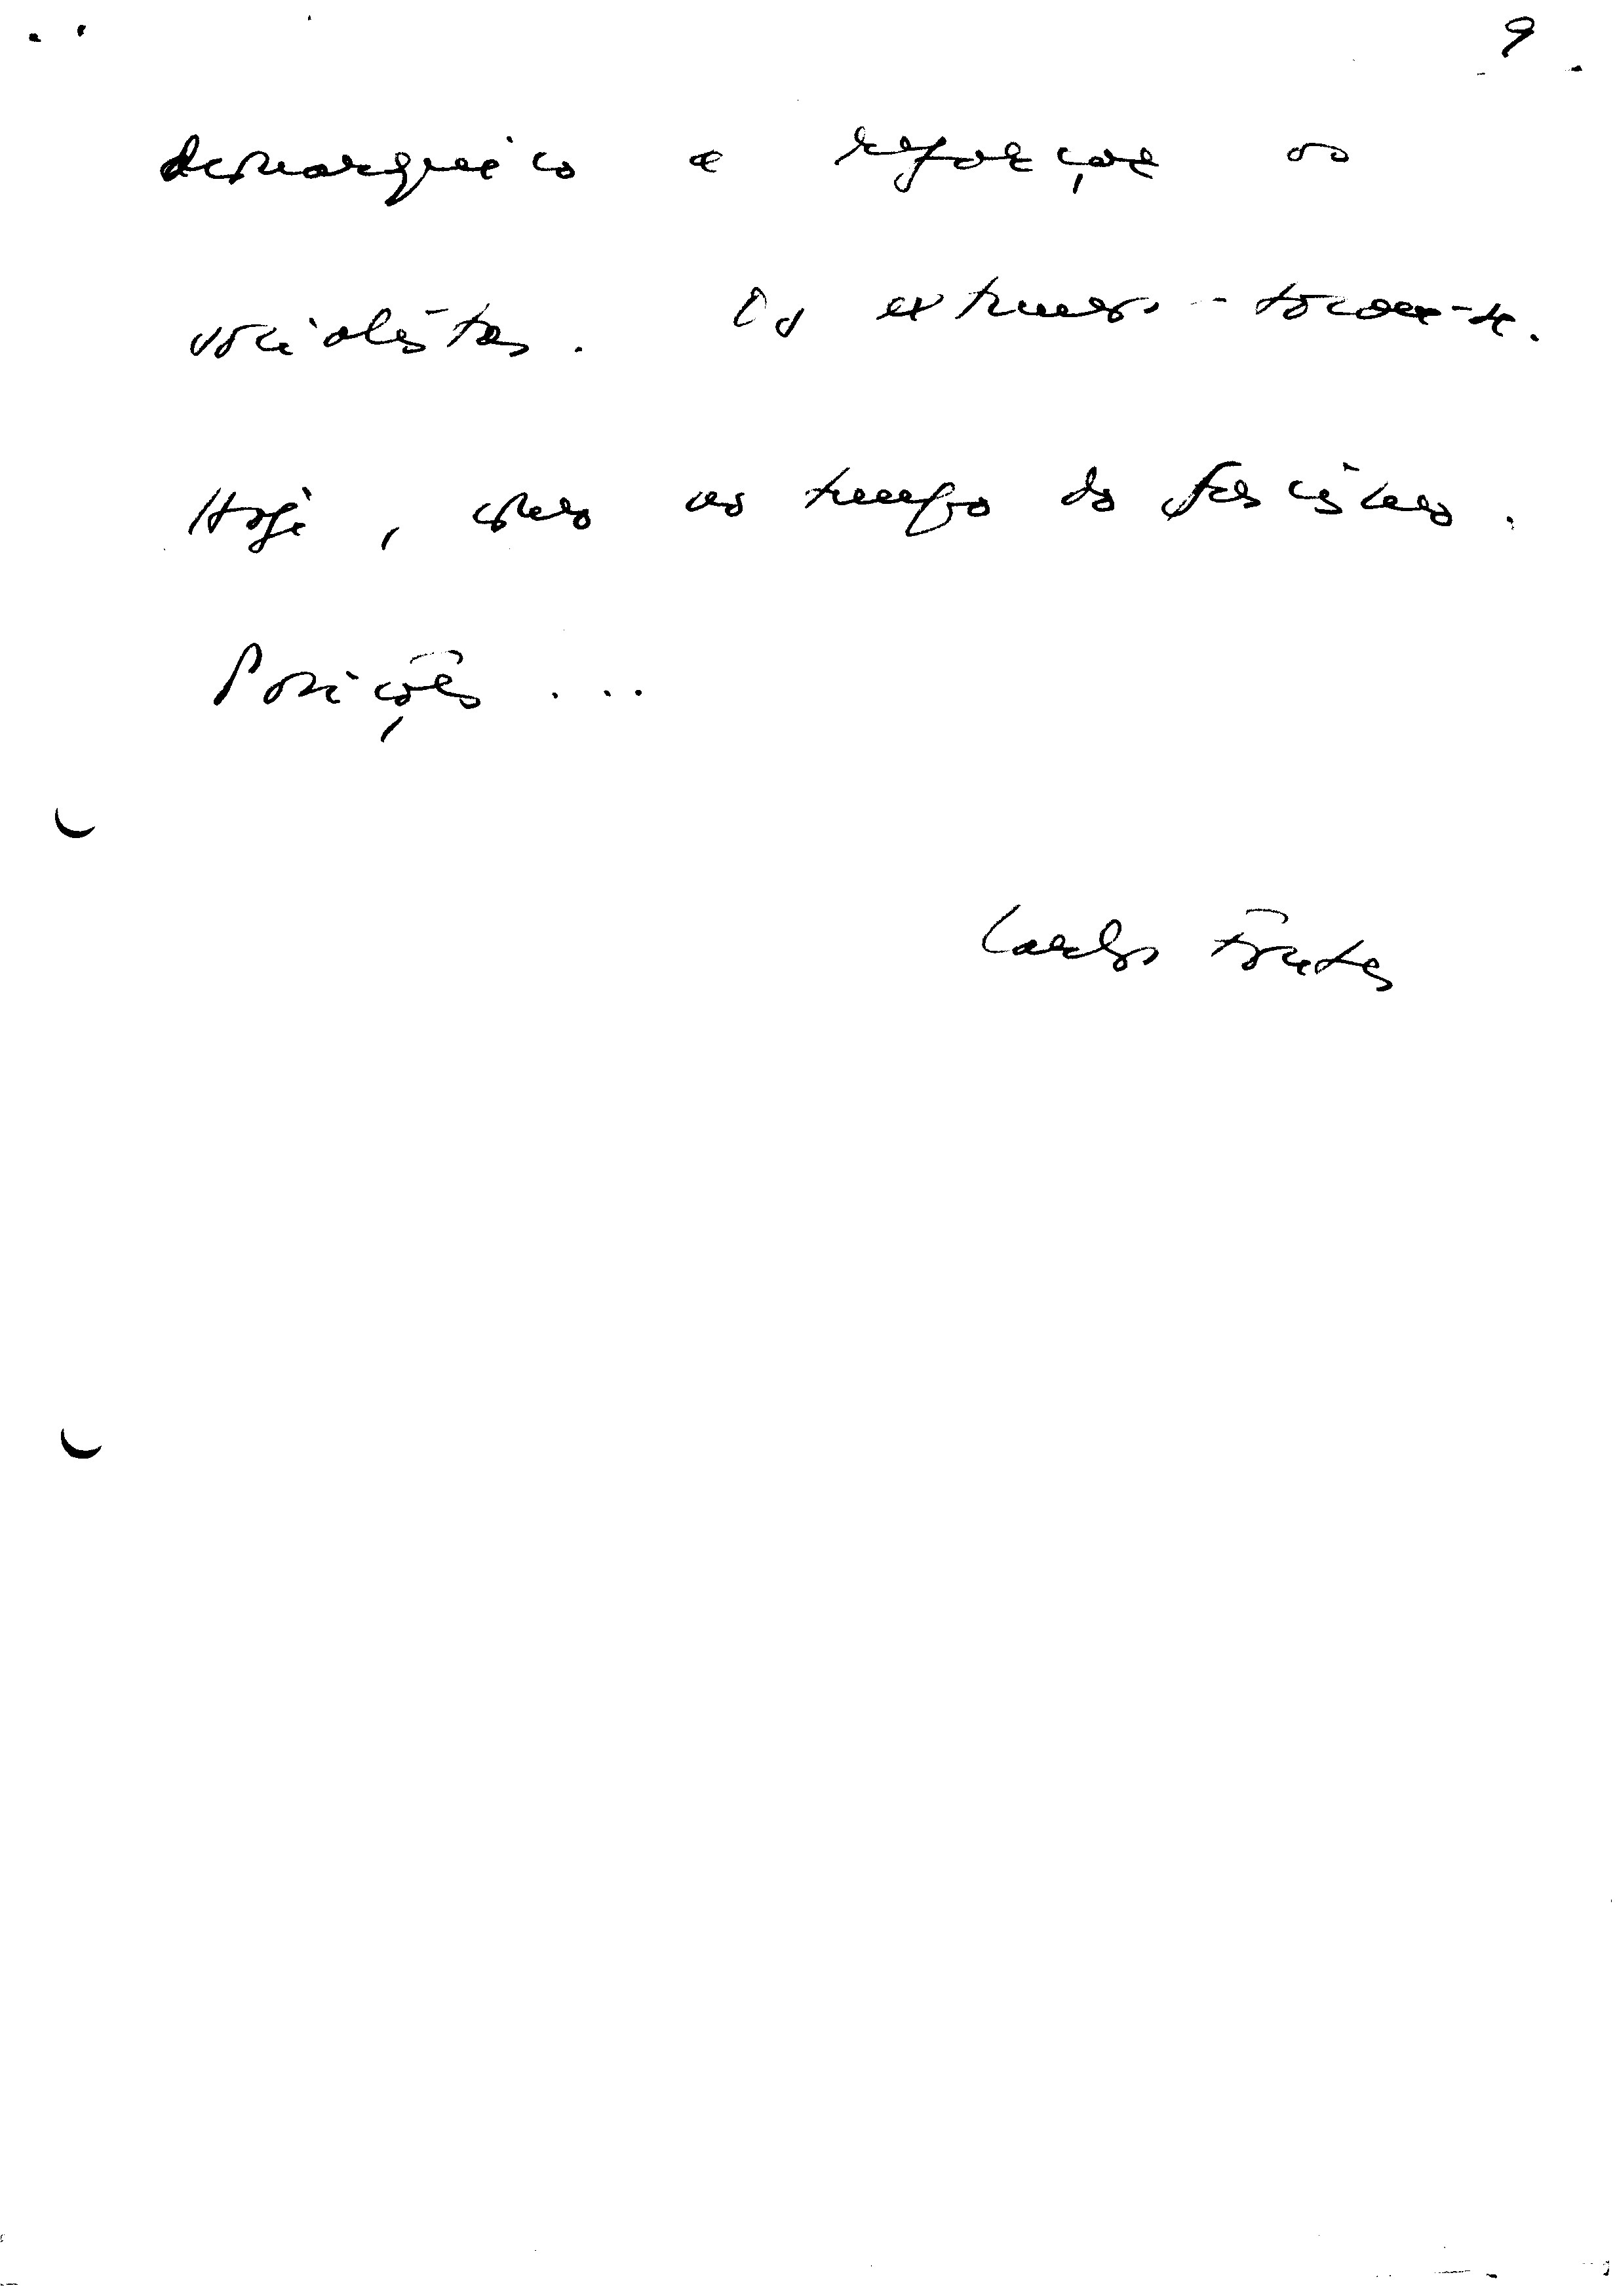 9
demarquico e reforçar os
socialistas. Os extremos tocam-se.
Hoje, como no tempo do fascismo.
Posições ...
Carlos Fontes